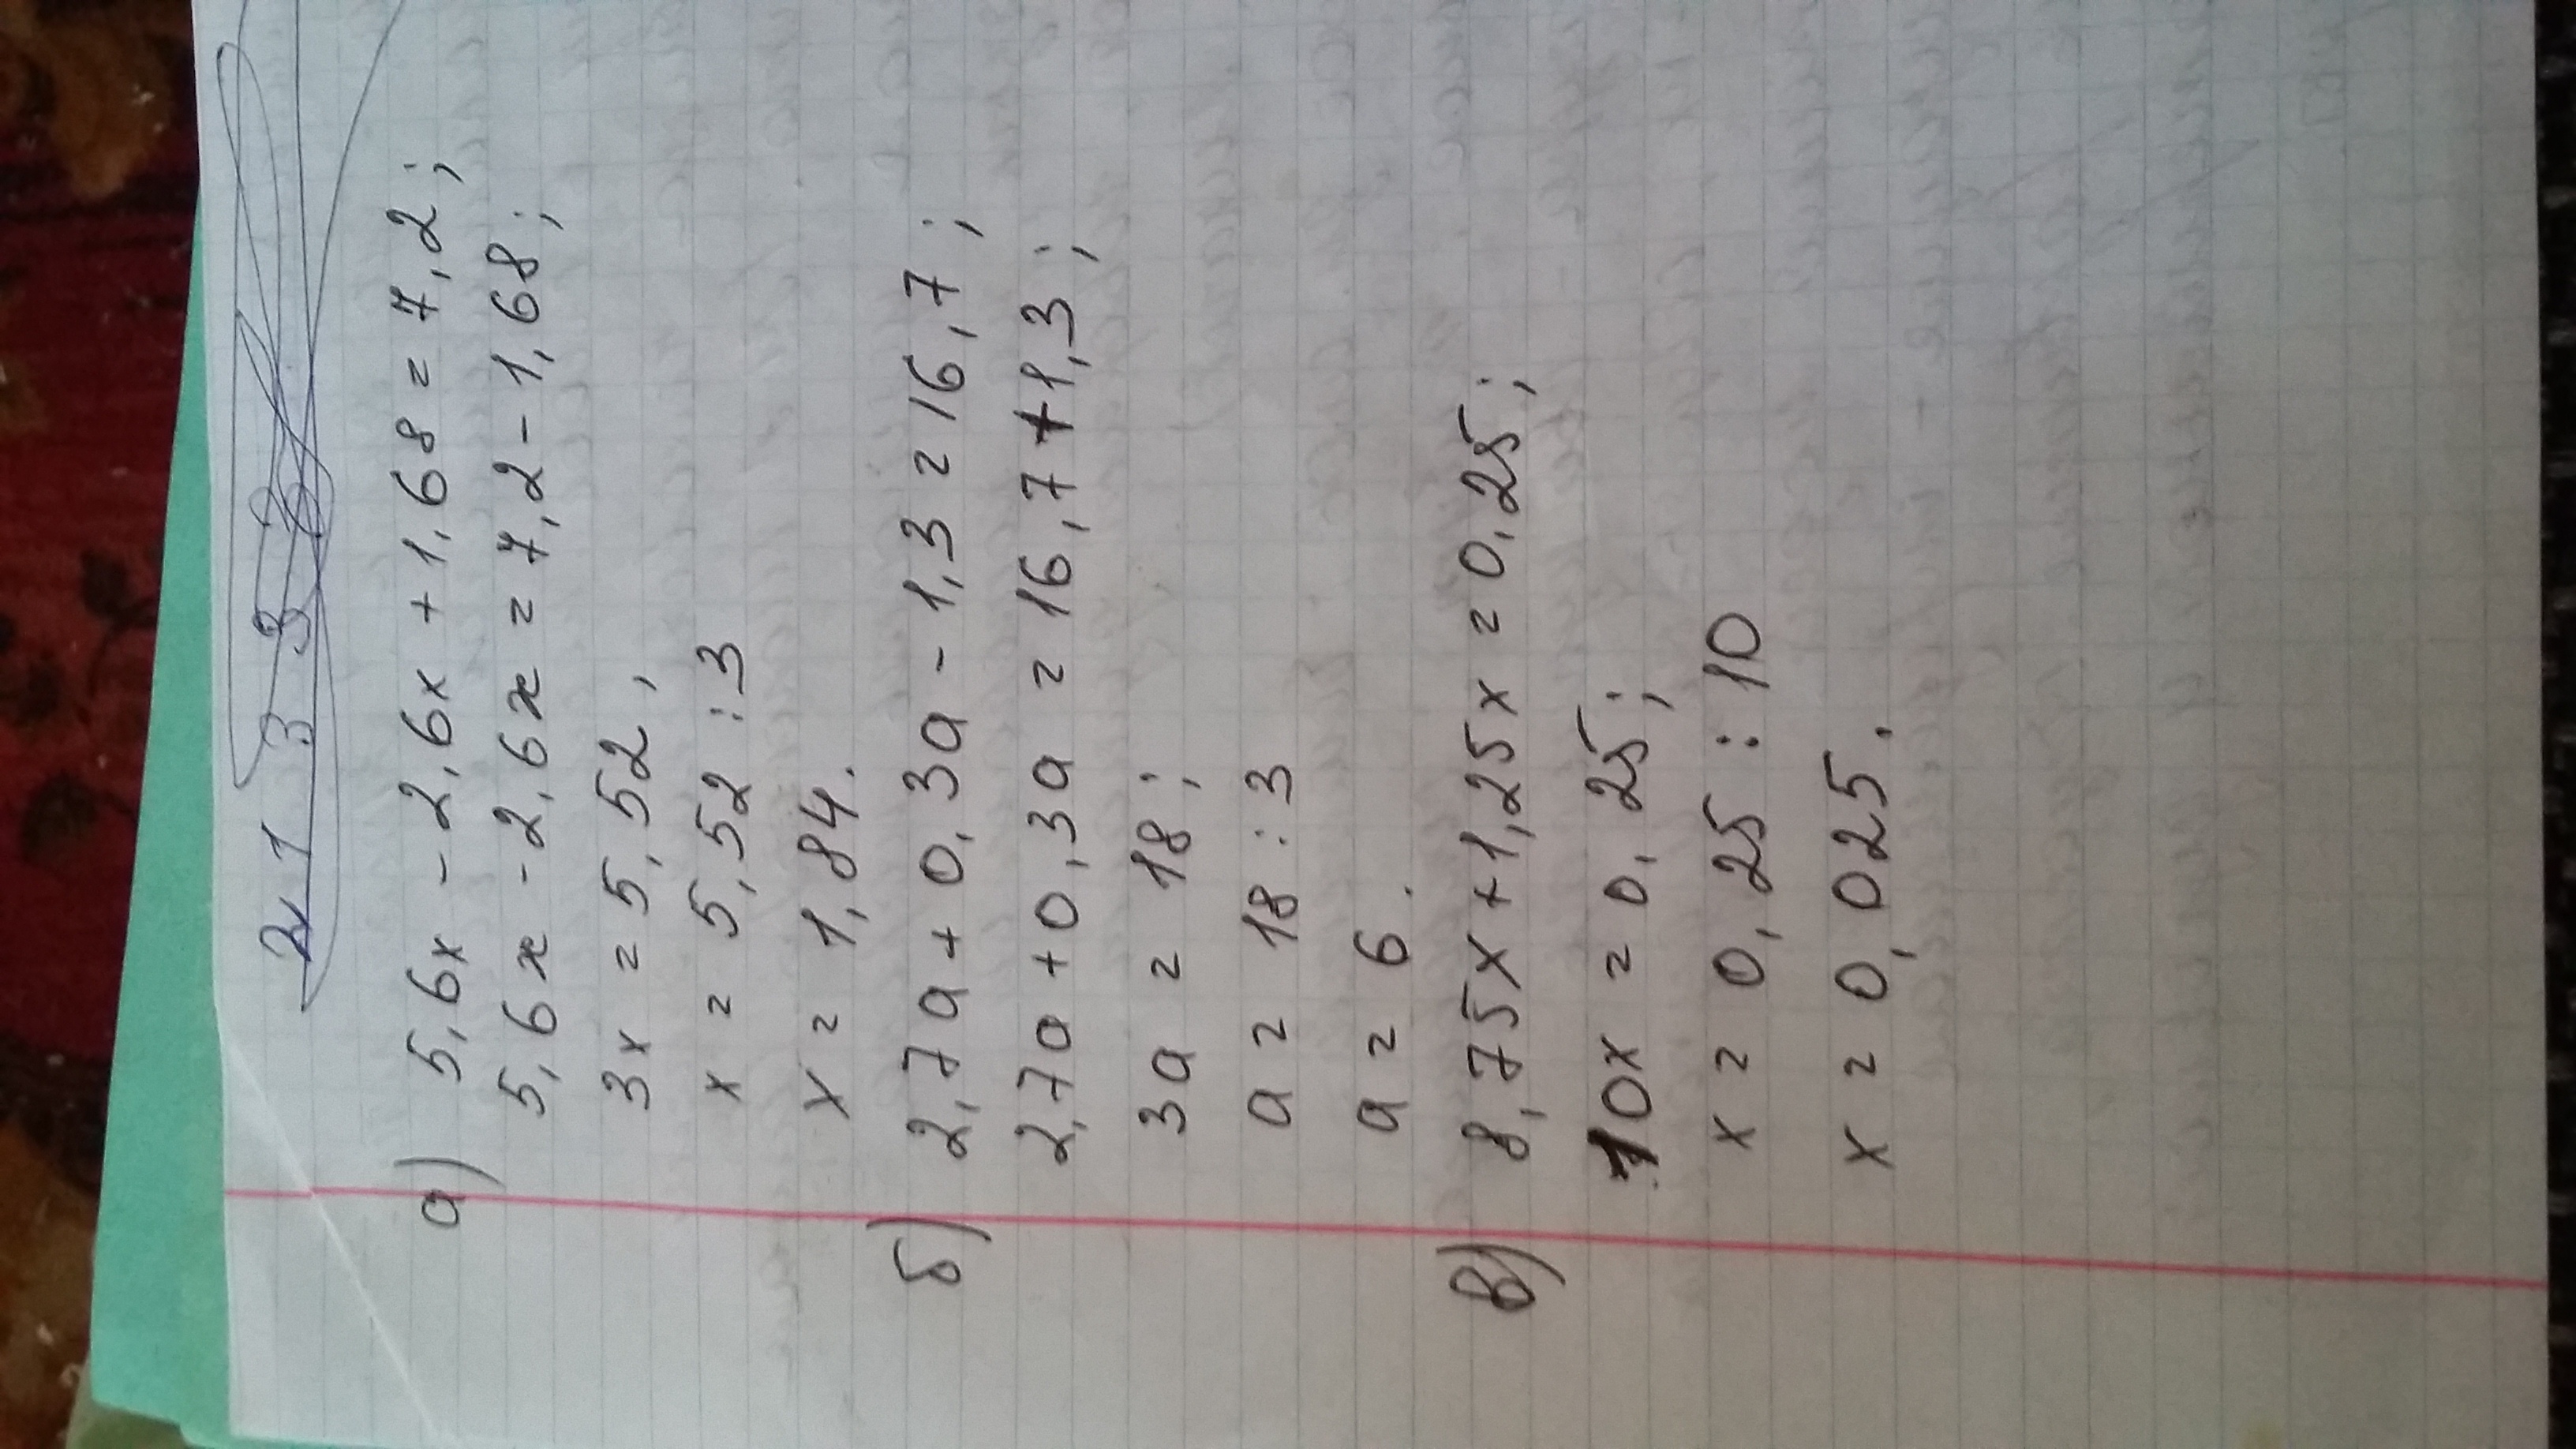 а) 5,6x - 2,6x + 1,68 = 7,2;
5,6x - 2,6x = 7,2 - 1,68;
3x = 5,52,
x = 5,52 : 3
x = 1,84.
б) 2,7a + 0,3a - 1,3 = 16,7;
2,7a + 0,3a = 16,7 + 1,3;
3a = 18;
a = 18 : 3
a = 6.
в) 8,75x + 1,25x = 0,25;
10x = 0,25;
x = 0,25 : 10
x = 0,025.